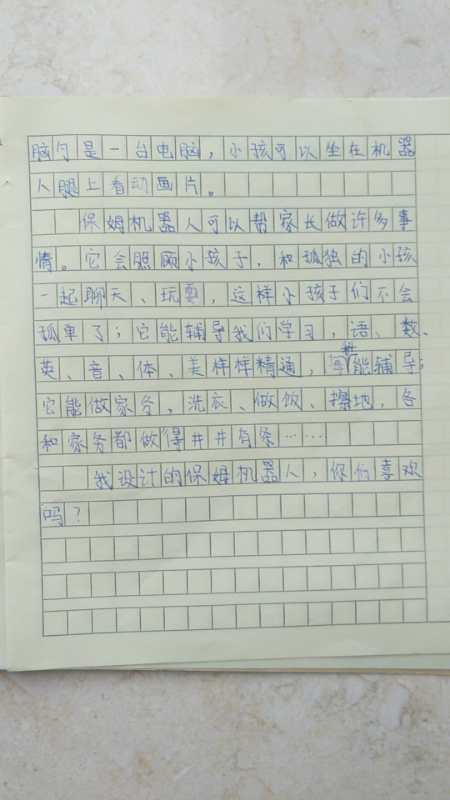 脑勺是一台电脑，小孩可以坐在机器
人腿上看动画片。
保姆机器人可以帮家长做许多事
情。它会照顾小孩子，和孤独的小孩
一起聊天、玩耍，这样小孩子们不会
孤单了；它能辅导我们学习，语、数、
英、音、体、美样样精通，都能辅导；
它能做家务，洗衣、做饭、擦地，各
和家务都做得井井有条……
我设计的保姆机器人，你们喜欢
吗？